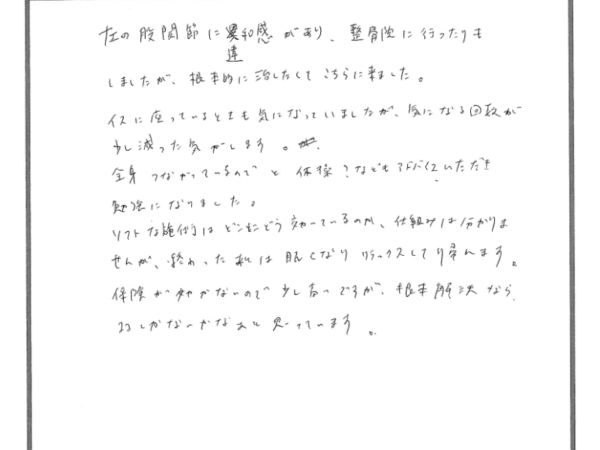 左の股関節に違和感があり、整骨院に行ったりも
しましたが、根本的に治したくてこちらに来ました。
イスに座っているときも気になっていましたが、気になる回数が
少し減った気がします。
全身つながっているのでと 体操?などもアドバイスいただき
勉強になりました。
ソフトな施術はどこにどう効いているのか、仕組みは分かりま
せんが、終わった頃は眠くなりリラックスして帰れます。
保険が効かないので少し高いですが、根本解決なら
しかないかなあと思っています。